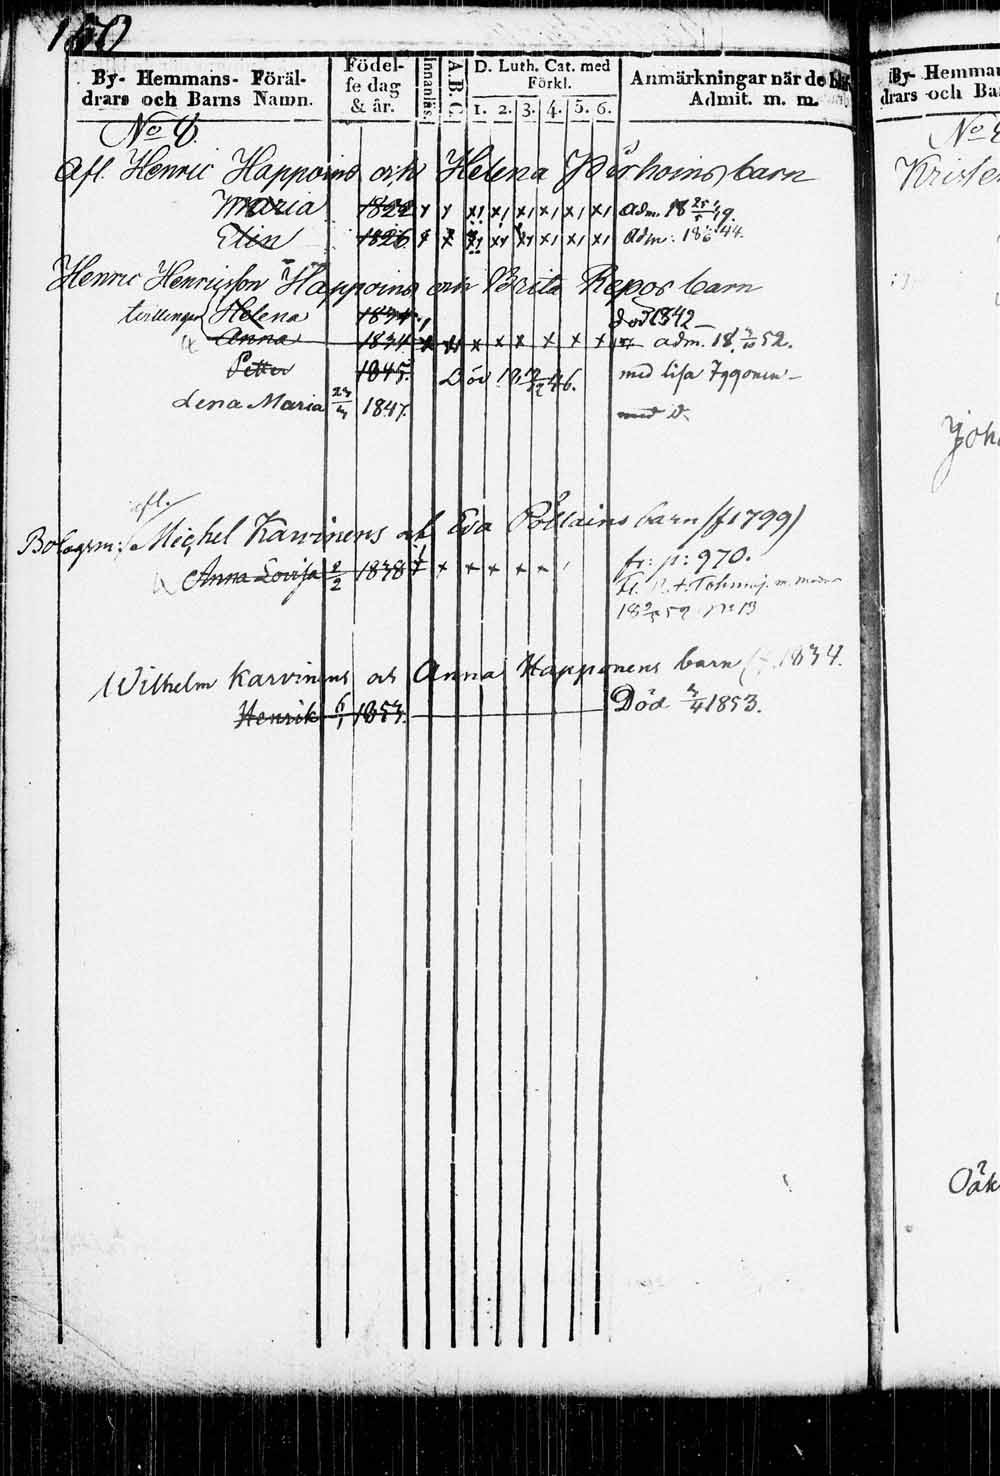 160
By- Hemmans- Föräl-
drars och Barns Namn.
Födel-
se dag
& år.
Innanläs.
A.B.C.
D. Luth. Cat. med
Förkl.
1. 2. 3. 4. 5. 6.
Anmärkningar när de
Admit. m. m.
No 8.
Afl. Henric Happoins och Helena barn
Maria 1822 adm. 18
Elin 1826 adm. 18 44.
Henric Henricsson Happoins och Brita Repos barn
tvillingar Helena 1834 död 1842
Anna 1834 adm. 18 52.
Petter 1845. Död 18 46. med Lisa
Lena Maria 1847. med d:
afl.
Bolagsm: Michel Karvinens och Eva Pöllains barn (f 1799)
Anna Lovisa 1838 fr: p: 970.
18 52 No 13
Wilhelm Karvinens och Anna Happonens barn 1834.
Henrik 6/1 1853. Död 3/4 1853.
By- Hemman
drars och Ba
No
Krister
Joha